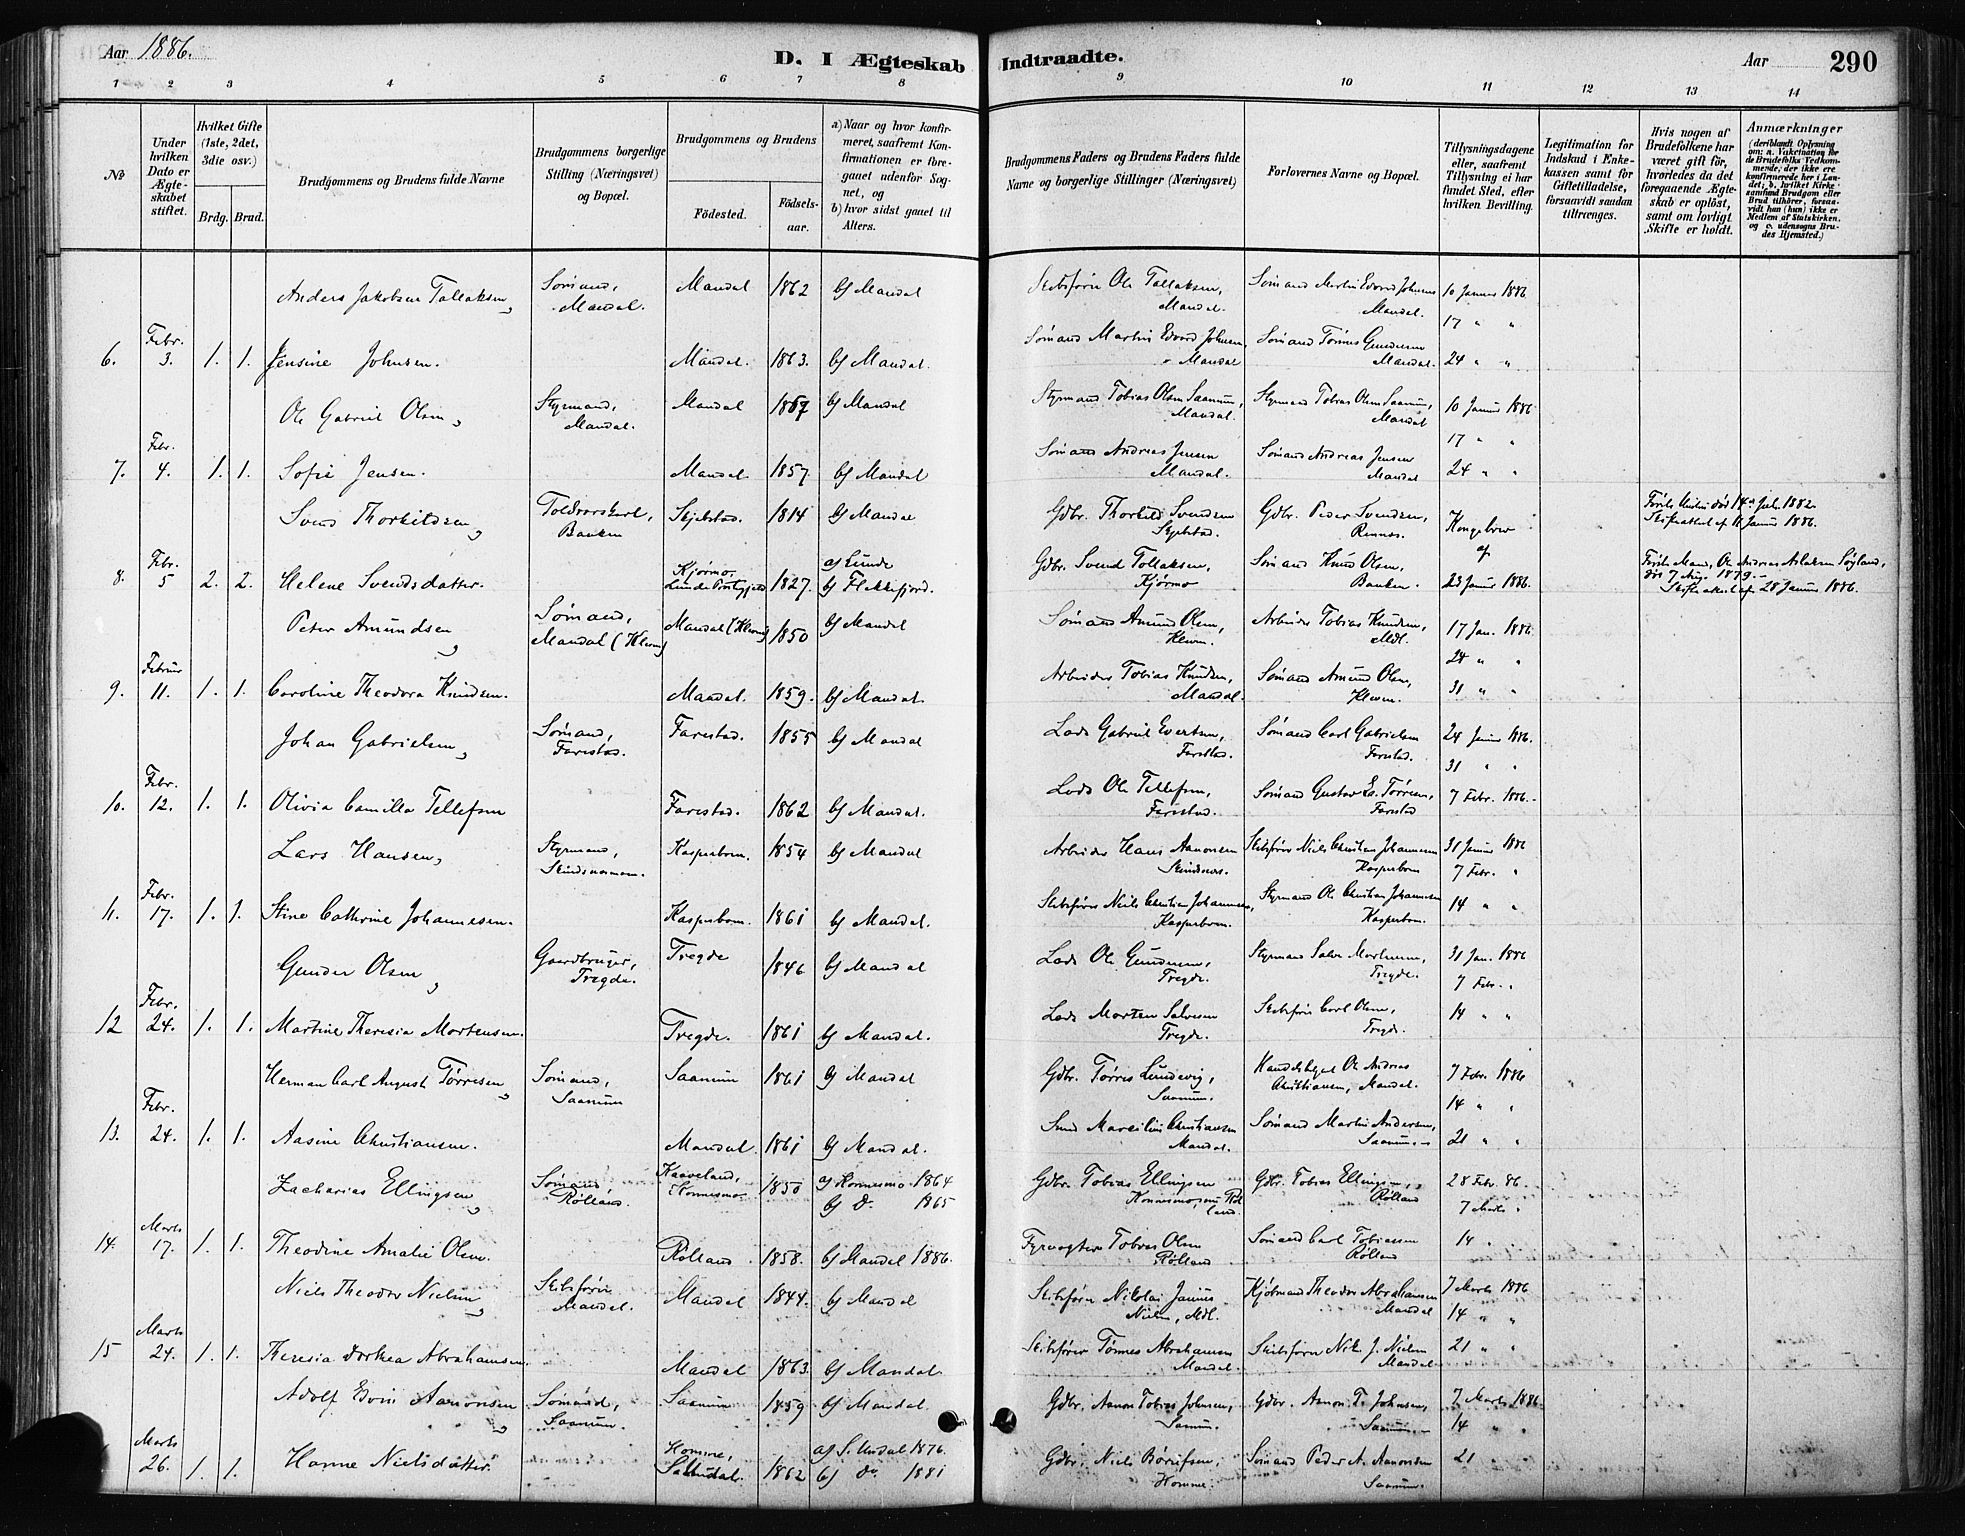 Aar 1886.
D. I Ægteskab Indtraadte.
Aar 290
1 2 3 4 5 6 7 8 9 10 11 12 13 14
No
Under hvilken Dato er Ægteskabet stiftet.
Hvilket Gifte (1ste, 2det, 3die osv.)
Brdg. Brud.
Brudgommens og Brudens fulde Navne
Brudgommens borgerlige Stilling (Næringsvei) og Bopæl.
Brudgommens og Brudens
Födested. Födsels-aar.
a) Naar og hvor konfirmeret, saafremt Konfirmationen er foregaaet udenfor Sognet, og
b) hvor sidst gaaet til Alters.
Brudgommens Faders og Brudens Faders fulde Navne og borgerlige Stillinger (Næringsvei)
Forlovernes Navne og Bopæl.
Tillysningsdagene eller, saafremt Tillysning ei har fundet Sted, efter hvilken Bevilling.
Legitimation for Indskud i Enkekassen samt for Giftetilladelse, forsaavidt saadan tiltrænges.
Hvis nogen af Brudefolkene har været gift för, hvorledes da det foregaaende Ægteskab er oplöst, samt om lovligt Skifte er holdt.
Anmærkninger
(deriblandt Oplysning om: a. Vakcination for de Brudefolks Vedkommende, der ikke ere konfirmerede her i Landet; b. hvilket Kirkesamfund Brudgom eller Brud tilhörer, forsaavidt han (hun) ikke er Medlem af Statskirken, og c. udensogns Brudes Hjemsted.)
Anders Jakobsen Tallaksen, Sømand, Mandal. Mandal 1862 b) Mandal Skibsfører Ole Tallaksen, Mandal. Sømand Martin Edvard Johnsen Mandal. 10 Januar 1886
17 " "
6. Febr. 3. 1. 1. Jensine Johnsen. Mandal. 1863. b) Mandal. Sømand Martin Edvard Johnsen, Mandal Sømand Tønnes Gundersen Mandal. 24 " "
Ole Gabriel Olsen, Styrmand, Mandal. Mandal b) Mandal Styrmand Tobias Olsen Saanum, Mandal. Styrmand Tobias Olsen Saanum, Mandal 10 Januar 1886
17 " "
7. Febr. 4. 1. 1. Sofie Jensen. Mandal 1857. b) Mandal Sømand Andreas Jensen Mandal. Sømand Andreas Jensen Mandal 24 " "
Svend Thorkildsen, Banken 1814 b) Mandal Gdbr. Thorkild Svendsen Gdbr. Peder Svendsen, Kongebrev af
8. Febr. 5 2. 2. Helene Svendsdatter. Kjørmo, 1827. a) Lunde b) Flekkefjord. Gdbr. Svend Tollaksen, Kjørmo Sømand Knud Olsen, Banken. 23 Januar 1886.
Peter Amundsen, Sømand, Mandal (Kleven) Mandal (Kleven) 1850 b) Mandal Sømand Amund Olsen, Kleven. Arbeider Tobias Knudsen, Mdl. 17 Jan. 1886
24 " "
9. Februar 11. 1. 1. Caroline Theodora Knudsen. Mandal. 1859. b) Mandal. Arbeider Tobias Knudsen, Mandal. Sømand Amund Olsen, Kleven. 31 " "
Johan Gabrielsen, Sømand, Farestad. Farestad. 1855 b) Mandal Lods Gabriel Evertsen, Farestad. Sømand Carl Gabrielsen Farestad. 24 Januar 1886.
31 " "
10. Febr. 12. 1. 1. Olivia Camilla Tellefsen Farestad. 1862 b) Mandal. Lods Ole Tellefsen, Farestad. Sømand Gustav Ed. Tørresen, Farestad 7 Febr. 1886.
Lars Hansen, Styrmand, Kasperbom. 1854 b) Mandal Arbeider Hans Aanonsen Skindsnes. Skibsfører Niels Christian Johannesen Kasperbom 31 Januar 1886
7 Febr. "
11. Febr. 17. 1. 1. Stine Cathrine Johannesen. Kasperbom. 1861 b) Mandal. Skibsfører Niels Christian Johannesen, Kasperbom. Styrmand Ole Christian Johannesen Kasperbom. 14 " "
Gunder Olsen, Gaardbruger, Tregde. Tregde 1846 b) Mandal Lods Ole Gundersen, Tregde. Styrmand Salve Mortensen, Tregde. 31 Jan. 1886
7 Febr. "
12 Febr. 24. 1. 1. Martine Theresia Mortensen. Tregde. 1861 b) Mandal. Lods Morten Salvesen Tregde. Skibsfører Carl Olsen, Tregde. 14 " "
Herman Carl August Tørresen, Sømand, Saanum Saanum 1861 b) Mandal Gdbr. Tørres Lundevig, Saanum. Ole Andreas Christiansen, Mandal. 7 Febr. 1886
14 " "
13. Febr. 24. 1. 1. Aasine Christiansen. Mandal. 1861 b) Mandal. Smed Marcelius Christiansen Mandal. Sømand Martin Andersen, Saanum. 21 " "
Zacharias Ellingsen, Sømand Rølland. Kaaveland, Konnesmo 1850 a) Konnesmo 1864 b) do. 1865 Gdbr. Tobias Ellingsen Gdbr. Tobias Ellingsen, Rølland 28 Febr. 86.
7 Marts "
14. Marts 17. 1. 1. Theodine Amalie Olsen. Rølland. 1858. b) Mandal 1886. Fyrvogter Tobias Olsen Rølland Sømand Carl Tobiassen Rølland 14 "
Niels Theodor Nielsen, Skibsfører Mandal. Mandal 1844. b) Mandal Skibsfører Nikolai Nielsen, Mdl. Kjøbmand Theodor Abrahamsen Mandal 7 Marts 1886
14 " "
15 Marts 24. 1. 1. Theresia Dorthea Abrahamsen. Mandal 1863. b) Mandal Skibsfører Tønnes Abrahamsen Mandal. Skibsfører Nik. J. Nielsen Mandal. 21 " "
Adolf Aanonsen, Sømand, Saanum. Saanum 1859 b) Mandal. Gdbr. Aanon Tobias Johnsen, Saanum. Gdbr. Aanon T. Johnsen, Saanum. 7 Marts 1886.
14 " "
Marts 26. 1. 1. Hanne Nielsdatter. Homme, 1862 a) S. Undal 1876. b) do 1881 Gdbr. Niels Børufsen, Homme. Sømand Peder A. Aanonsen Saanum. 21